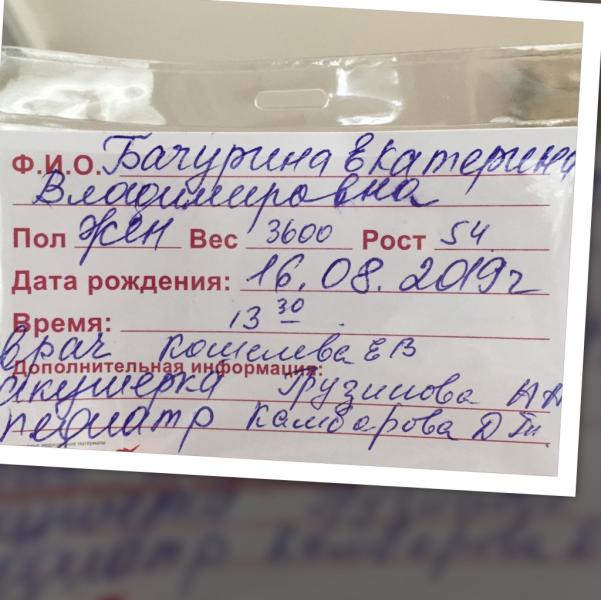 Ф.И.О. Бачурина Екатерина
Владимировна
Пол жен Вес 3600 Рост 54
Дата рождения: 16.08.2019г
Время: 13 30
врач Кошелева ЕВ
Дополнительная информация:
акушерка Грузинова АА
педиатр Камбарова Д